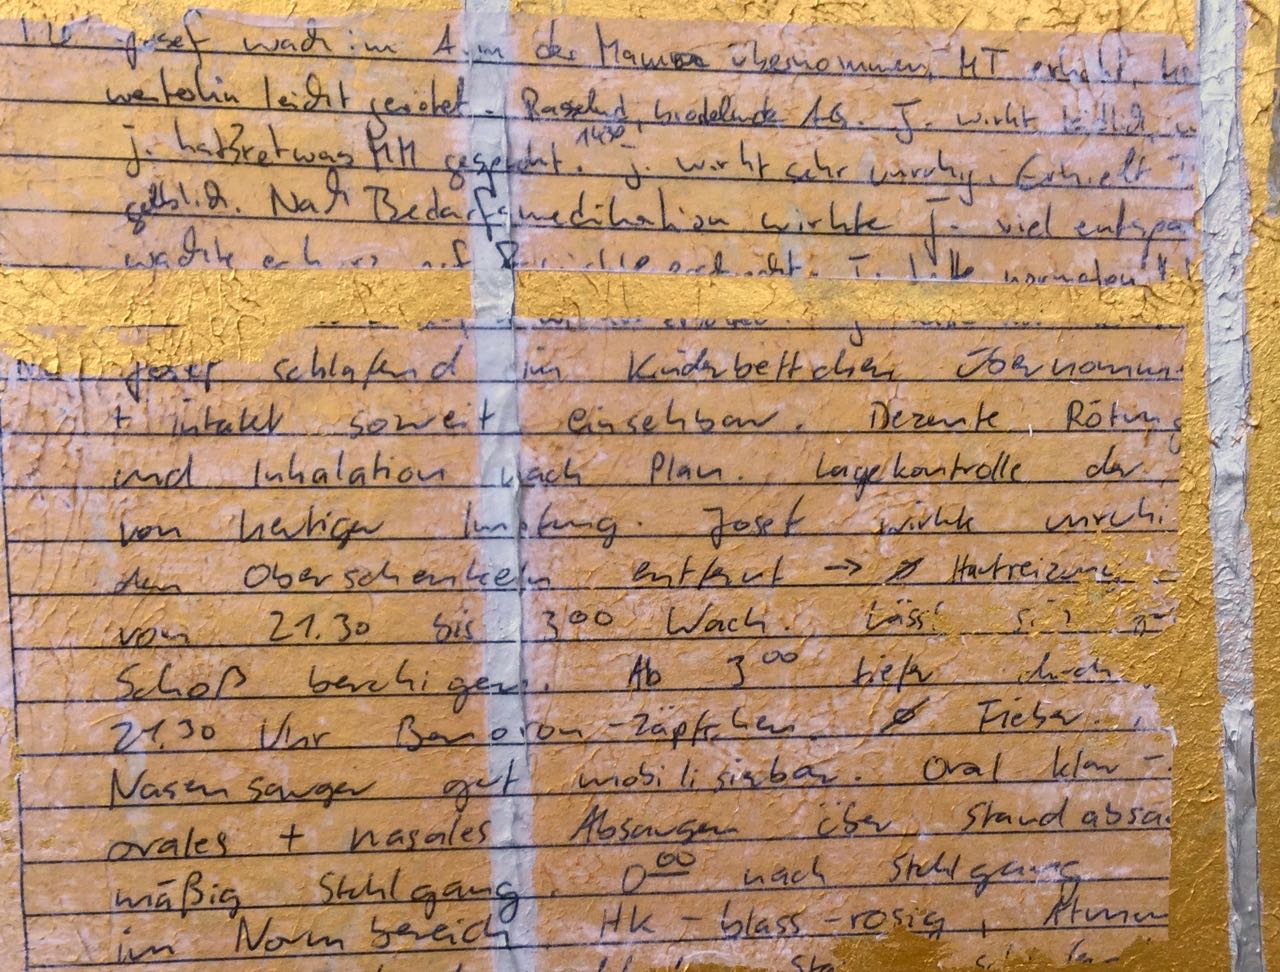 Josef wach im Arm der Mama übernommen, MT erhöht,
weiterhin leicht gerötet. Rasselnd, brodelnde AG. J. wirkt
J. hat etwas MM gespuckt. 14³⁰ J. wirkt sehr unruhig. Erhielt
Nach Bedarfsmedikation wirkte J. viel entspa
wachte er kurz auf J. hatte normalen
Josef schlafend im Kinderbettchen übernomm
+ intakt soweit einsehbar. Dezente Rötung
und Inhalation nach Plan. Lagekontrolle der
von heutiger Impfung. Josef wirkte unruhi
den Oberschenkeln entfernt → ø Hautreizung
von 21.30 bis 3⁰⁰ Wach. Lässt
Schoß beruhigen. Ab 3⁰⁰ tiefer
21.30 Uhr -Zäpfchen. ø Fieber.
Nasensauger gut mobilisierbar. Oral klar
orales + nasales Absaugen über Standabsa
mäßig Stuhlgang. 0⁰⁰ nach Stuhlgang
im Normbereich HK - blass - rosig, Atmun